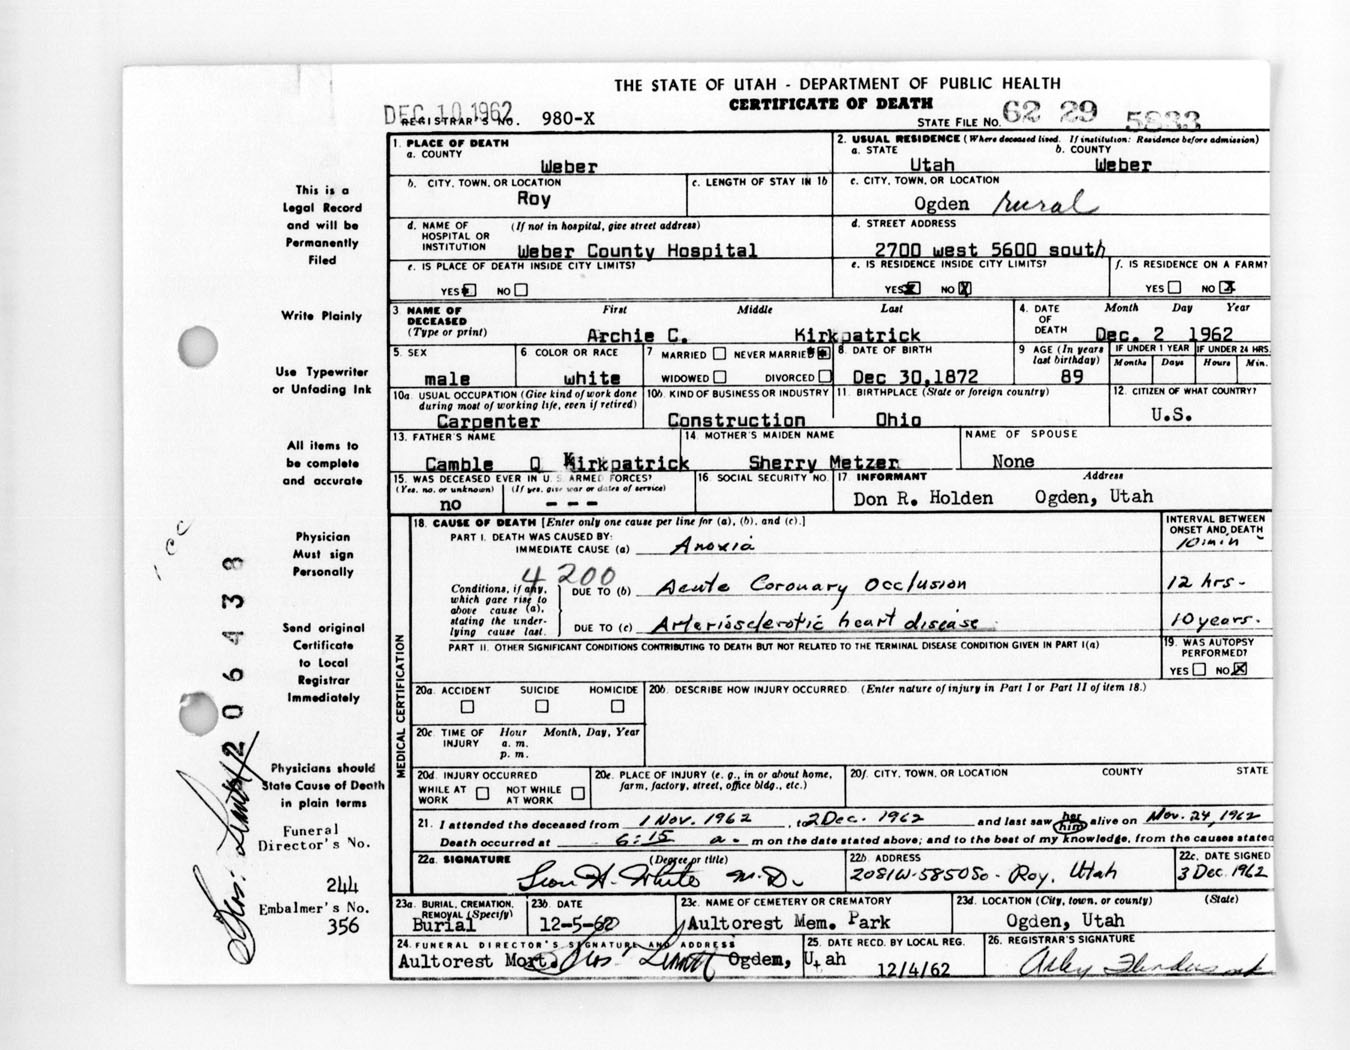 THE STATE OF UTAH - DEPARTMENT OF PUBLIC HEALTH
CERTIFICATE OF DEATH
DEC 10 1962
REGISTRAR'S NO. 980-X
STATE FILE NO. 62 29 5833
1. PLACE OF DEATH
a. COUNTY
Weber
2. USUAL RESIDENCE (Where deceased lived. If institution: Residence before admission)
a. STATE b. COUNTY
Utah Weber
b. CITY, TOWN, OR LOCATION
Roy
c. LENGTH OF STAY IN 1b
c. CITY, TOWN, OR LOCATION
Ogden rural
d. NAME OF HOSPITAL OR INSTITUTION (If not in hospital, give street address)
Weber County Hospital
d. STREET ADDRESS
2700 west 5600 south
e. IS PLACE OF DEATH INSIDE CITY LIMITS?
YES NO
e. IS RESIDENCE INSIDE CITY LIMITS?
YES NO X
f. IS RESIDENCE ON A FARM?
YES NO X
3. NAME OF DECEASED (Type or print)
First Middle Last
Archie C. Kirkpatrick
4. DATE OF DEATH
Month Day Year
Dec. 2 1962
5. SEX
male
6. COLOR OR RACE
white
7. MARRIED NEVER MARRIED
WIDOWED DIVORCED
8. DATE OF BIRTH
Dec 30,1872
9. AGE (In years last birthday)
89
IF UNDER 1 YEAR IF UNDER 24 HRS.
Months Days Hours Min.
10a. USUAL OCCUPATION (Give kind of work done during most of working life, even if retired)
Carpenter
10b. KIND OF BUSINESS OR INDUSTRY
Construction
11. BIRTHPLACE (State or foreign country)
Ohio
12. CITIZEN OF WHAT COUNTRY?
U.S.
13. FATHER'S NAME
Camble Q Kirkpatrick
14. MOTHER'S MAIDEN NAME
Sherry Metzer
NAME OF SPOUSE
None
15. WAS DECEASED EVER IN U.S. ARMED FORCES?
(Yes, no, or unknown) (If yes, give war or dates of service)
no - - -
16. SOCIAL SECURITY NO.
17. INFORMANT Address
Don R. Holden Ogden, Utah
MEDICAL CERTIFICATION
18. CAUSE OF DEATH [Enter only one cause per line for (a), (b), and (c).]
INTERVAL BETWEEN ONSET AND DEATH
PART I. DEATH WAS CAUSED BY:
IMMEDIATE CAUSE (a) Anoxia 10 min
4200
Conditions, if any, which gave rise to above cause (a), stating the underlying cause last.
DUE TO (b) Acute Coronary Occlusion 12 hrs.
DUE TO (c) Arteriosclerotic heart disease 10 years.
PART II. OTHER SIGNIFICANT CONDITIONS CONTRIBUTING TO DEATH BUT NOT RELATED TO THE TERMINAL DISEASE CONDITION GIVEN IN PART I(a)
19. WAS AUTOPSY PERFORMED?
YES NO X
20a. ACCIDENT SUICIDE HOMICIDE
20b. DESCRIBE HOW INJURY OCCURRED. (Enter nature of injury in Part I or Part II of item 18.)
20c. TIME OF INJURY Hour Month, Day, Year
a. m.
p. m.
20d. INJURY OCCURRED
WHILE AT WORK NOT WHILE AT WORK
20e. PLACE OF INJURY (e. g., in or about home, farm, factory, street, office bldg., etc.)
20f. CITY, TOWN, OR LOCATION COUNTY STATE
21. I attended the deceased from 1 Nov. 1962, to 2 Dec. 1962 and last saw her him alive on Nov. 24, 1962
Death occurred at 6:15 a. m on the date stated above; and to the best of my knowledge, from the causes stated
22a. SIGNATURE (Degree or title)
Leon H. White M.D.
22b. ADDRESS
2081 W. 5850 So - Roy, Utah
22c. DATE SIGNED
3 Dec. 1962
23a. BURIAL, CREMATION, REMOVAL (Specify)
Burial
23b. DATE
12-5-62
23c. NAME OF CEMETERY OR CREMATORY
Aultorest Mem. Park
23d. LOCATION (City, town, or county) (State)
Ogden, Utah
24. FUNERAL DIRECTOR'S SIGNATURE AND ADDRESS
Aultorest Mort. Ogden, Utah
25. DATE RECD. BY LOCAL REG.
12/4/62
26. REGISTRAR'S SIGNATURE
This is a
Legal Record
and will be
Permanently
Filed
Write Plainly
Use Typewriter
or Unfading Ink
All items to
be complete
and accurate
Physician
Must sign
Personally
Send original
Certificate
to Local
Registrar
Immediately
Physicians should
State Cause of Death
in plain terms
Funeral
Director's No.
244
Embalmer's No.
356
206438